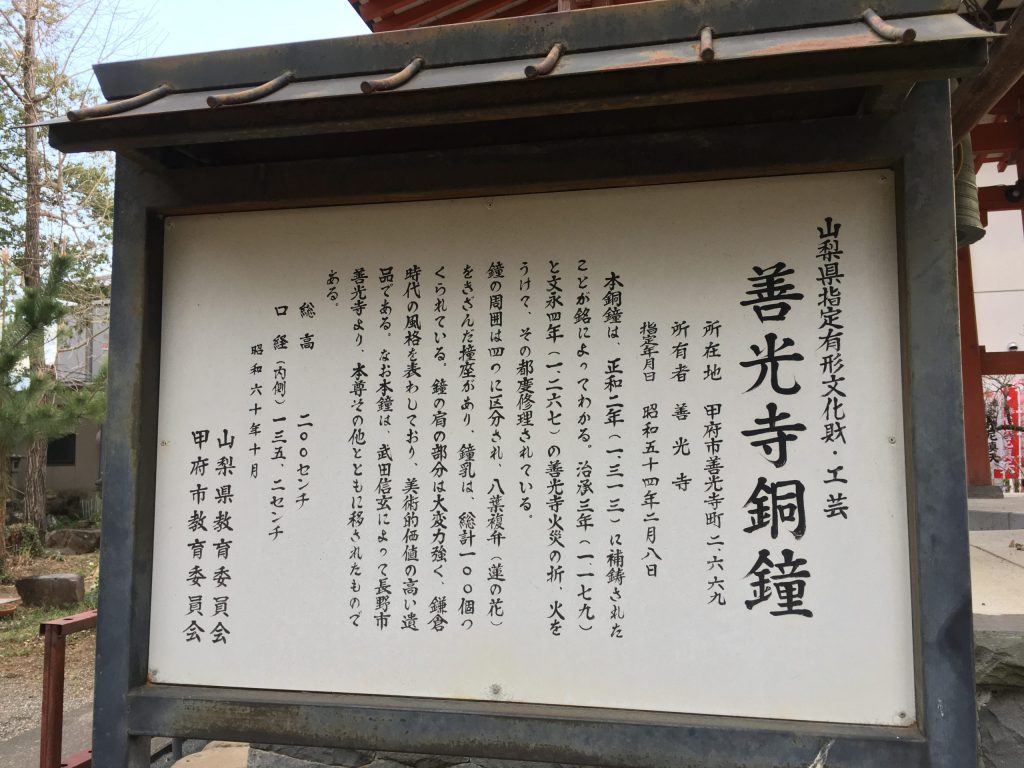 山梨県指定有形文化財・工芸
善光寺銅鐘
所在地　甲府市善光寺町二、六六九
所有者　善光寺
指定年月日　昭和五十四年二月八日
本銅鐘は、正和二年（一、三一三）に補鋳された
ことが銘によってわかる。治承三年（一、一七九）
と文永四年（一、二六七）の善光寺火災の折、火を
うけて、その都度修理されている。
鐘の周囲は四つに区分され、八葉複弁（蓮の花）
をきざんだ撞座があり、鐘乳は、総計一〇〇個つ
くられている。鐘の肩の部分は大変力強く、鎌倉
時代の風格を表わしており、美術的価値の高い遺
品である。なお本鐘は、武田信玄によって長野市
善光寺より、本尊その他とともに移されたもので
ある。
総高　二〇〇センチ
口経（内側）一三五、二センチ
昭和六十年十月
山梨県教育委員会
甲府市教育委員会